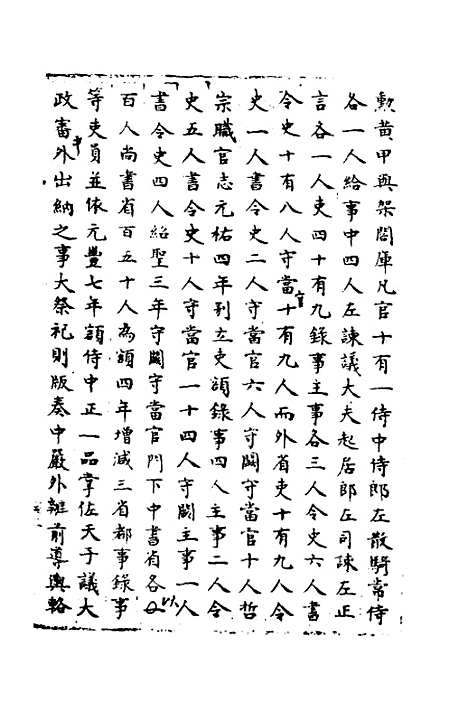 勲黄甲與架閣庫凡官十有一侍中侍郎左散騎常侍
各一人給事中四人左諫議大夫起居郎左司諫左正
言各一人吏四十有九錄事主事各三人令史六人書
令史十有八人守當官十有九人而外省吏十有九人令
史一人書令史二人守當官六人守闕守當官十人哲
宗職官志元祐四年刋立吏額錄事四人主事二人令
史五人書令史十人守當官一十四人守闕主事一人
書令史四人紹聖三年守闕守當官門下中書省各以
百人尚書省百五十人為額四年增減三省都事錄事
等吏員並依元豐七年額侍中正一品掌佐天子議大
政審中外出納之事大祭祀則版奏中嚴外辦前導輿輅